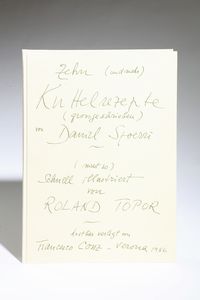 Zehn (und mehr)
Kuttelrezepte
von Daniel Spoerri
(
schnell illustriert
von
ROLAND TOPOR
verlegt
Francesco Conz - Verona 1986